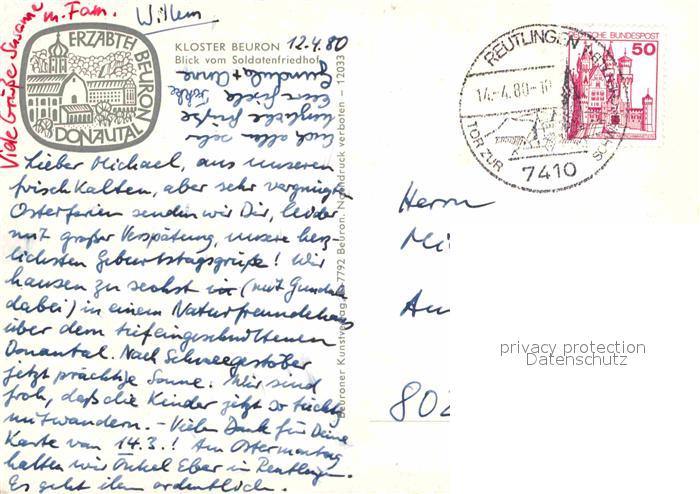 Viele Grüße Susanne
m. Fam.
Willem
ERZABTEI BEURON
DONAUTAL
KLOSTER BEURON
Blick vom Soldatenfriedhof
12.4.80
Lieber Michael, aus unseren
frischkalten, aber sehr vergnügten
Osterferien senden wir Dir, leider
mit großer Verspätung, unsere herz-
lichsten Geburtstagsgrüße! Wir
hausen zu sechst (mit Gundula
dabei) in einem Naturfreundehaus
über dem tiefeingeschnittenen
Donautal. Nach Schneegestöber
jetzt prächtige Sonne. Wir sind
froh, daß die Kinder jetzt so tüchtig
mitwandern. – Vielen Dank für Deine
Karte vom 14.3.! Am Ostermontag
hatten wir Onkel Eber in Reutlingen.
Es geht ihm ordentlich.
Euch allen sehr
herzliche Grüße
Eure Gisela
Gundula + Anne
Beuroner Kunstverlag, D-7792 Beuron. Nachdruck verboten – 12033
REUTLINGEN
14.-4.80-10
TOR ZUR SCHWÄBISCHEN
7410
DEUTSCHE BUNDESPOST
50
Herrn
Mi
802
privacy protection
Datenschutz